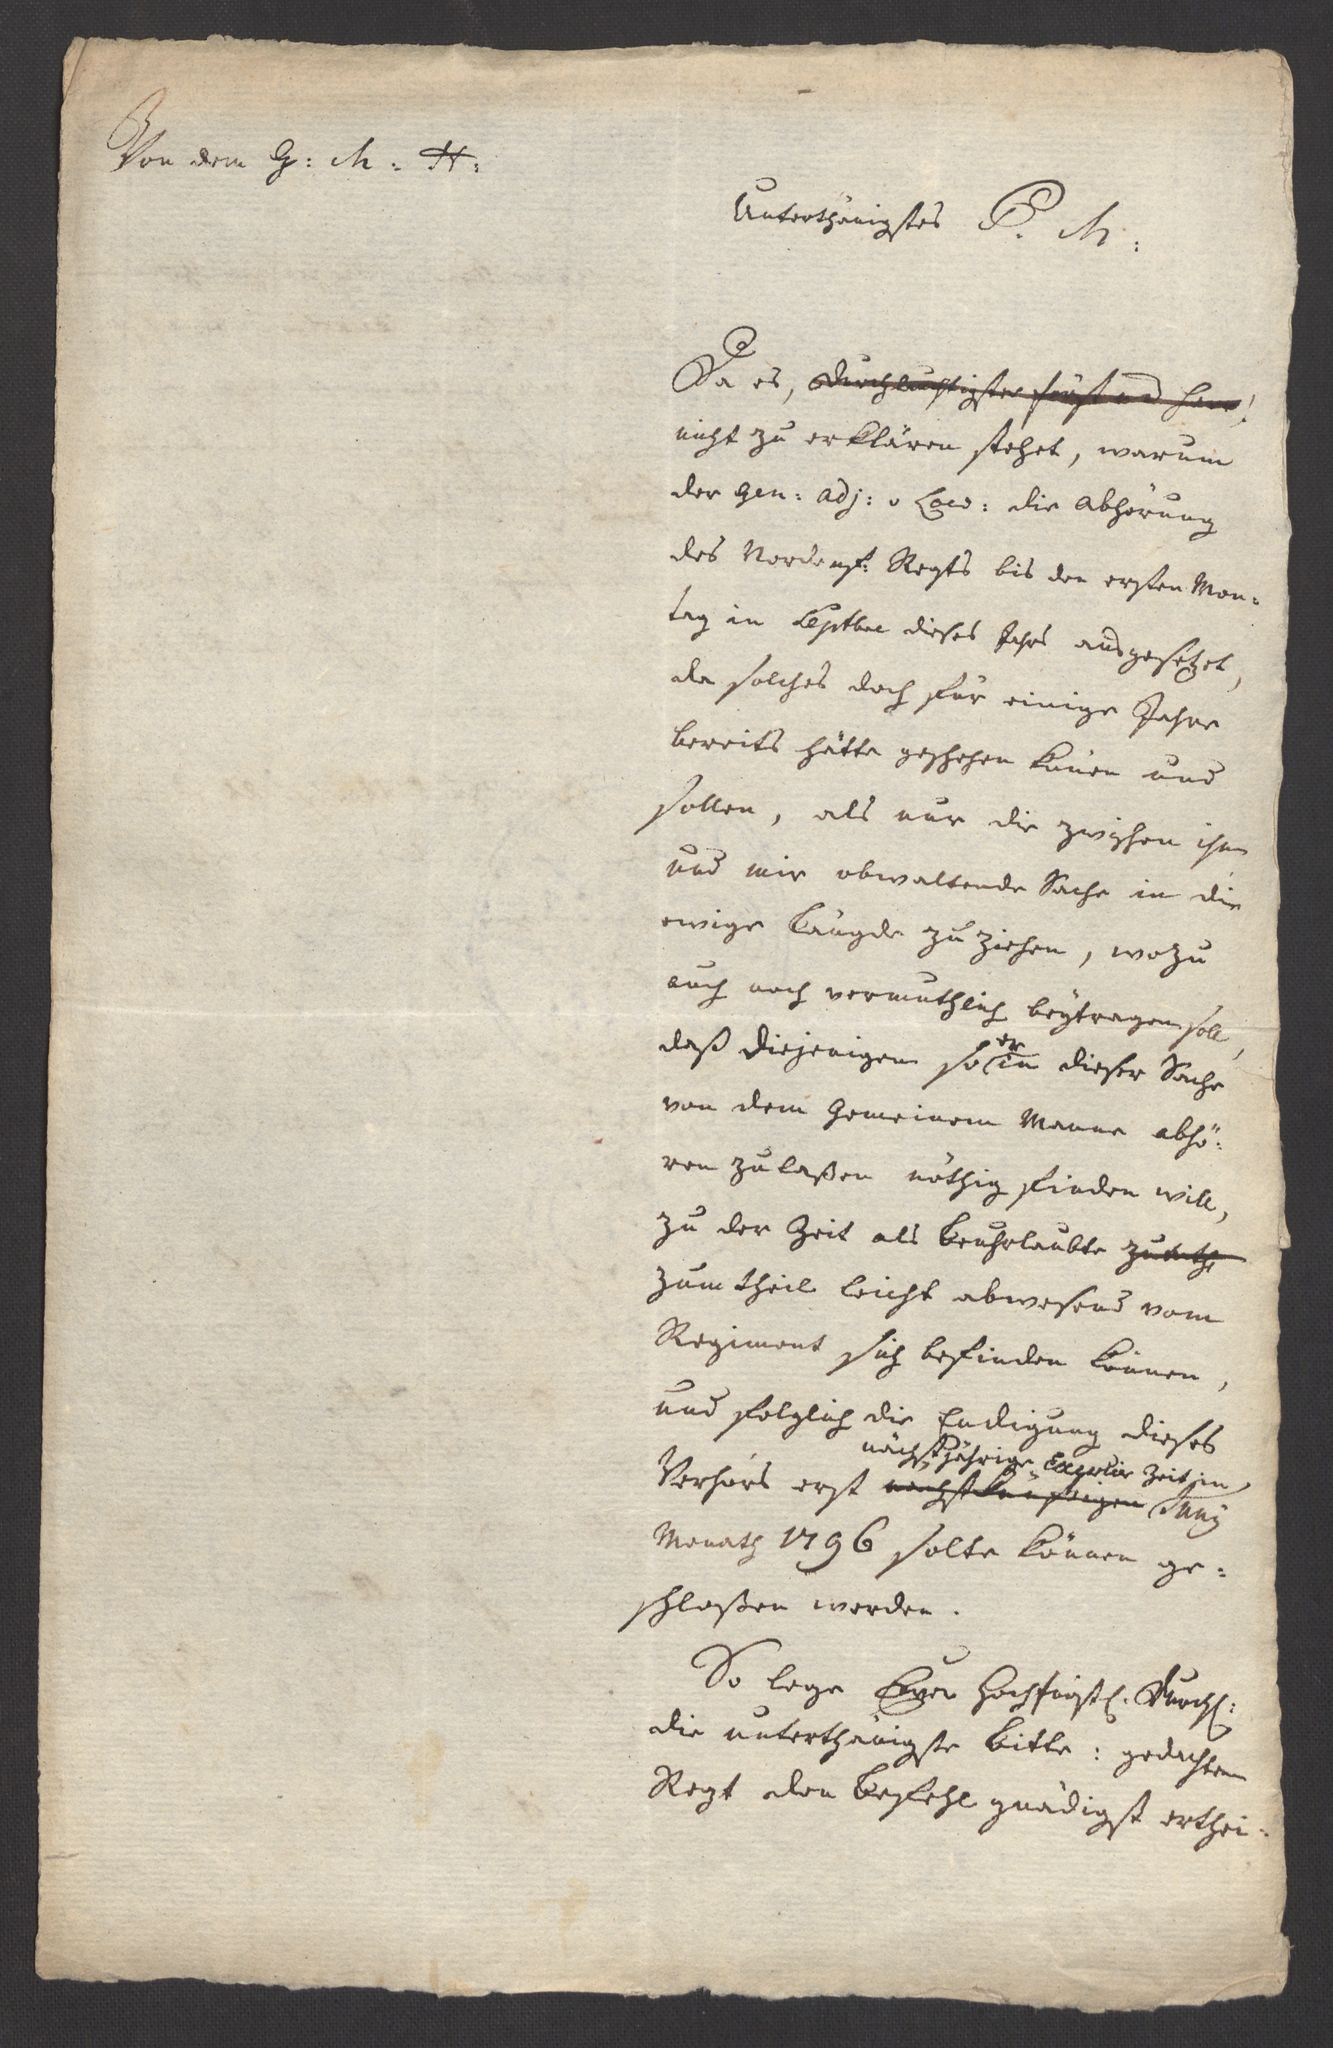 Von dem G: M: H:
Unterthänigstes P. M:
Da es, Durchlauchtigster Fürst und Herr!
nicht zu erklären stehet, warum
der Gen: Adj: v die Abhörung
des Nordenfl: Regts bis den ersten Mon-
tag in Septbre dieses Jahrs ausgesetzet,
da solches doch für einige Jahre
bereits hätte geschehen könen und
sollen, als nur die zwischen ihm
und mir obwaltende Sache in die
ewige Längde zu ziehen, wozu
auch noch vermuthlich beytragen soll,
daß diejenigen so er in dieser Sache
von dem Gemeinem Manne abhö-
ren zulaßen nöthig finden will,
zu der Zeit als beuhrlaubte
zum theil leicht abwesend vom
Regiment sich befinden können,
und folglich die Endigung dieses
nächstjährige Exercier Zeit im
Verhörs erst nächstkünftigen Juny
Monath 1796 solte können ge-
schloßen werden.
So lege Ewer Hochfürstl. Durchl:
die unterthänigste Bitte: gedachtem
Regt den Befehl gnädigst erthei-